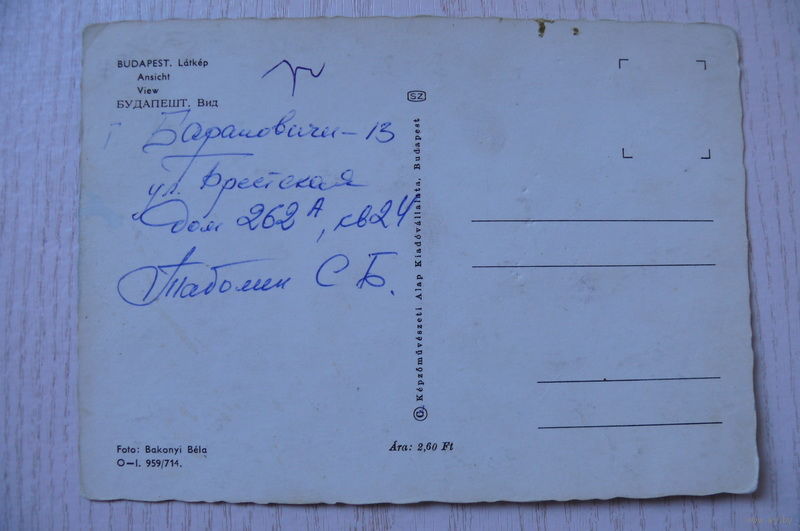 BUDAPEST. Látkép
Ansicht
View
БУДАПЕШТ. Вид
г Барановичи-13
ул. Брестская
дом 262А, кв24
С Б.
Foto: Bakonyi Béla
O—I. 959/714.
SZ
© Képzőművészeti Alap Kiadóvállalata, Budapest
Ára: 2,60 Ft